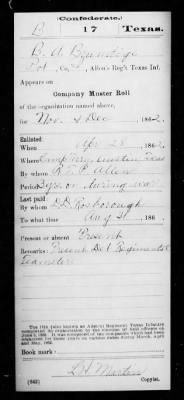 (Confederate.)
B 17 Texas.
B. A.
Pvt, Co. , Allen's Reg't Texas Inf.
Appears on
Company Muster Roll
of the organization named above,
for Nov & Dec , 1862
Enlisted:
When Apr 28 , 1862.
Where Camp Terry Austin Texas
By whom R. T. P. Allen
Period 3 yrs or during war
Last paid:
By whom D. D. Rosborough
To what time Aug 31 , 186
Present or absent Present
Remarks: Present Det Regimental
Teamster
Book mark:
(642) Copyist.